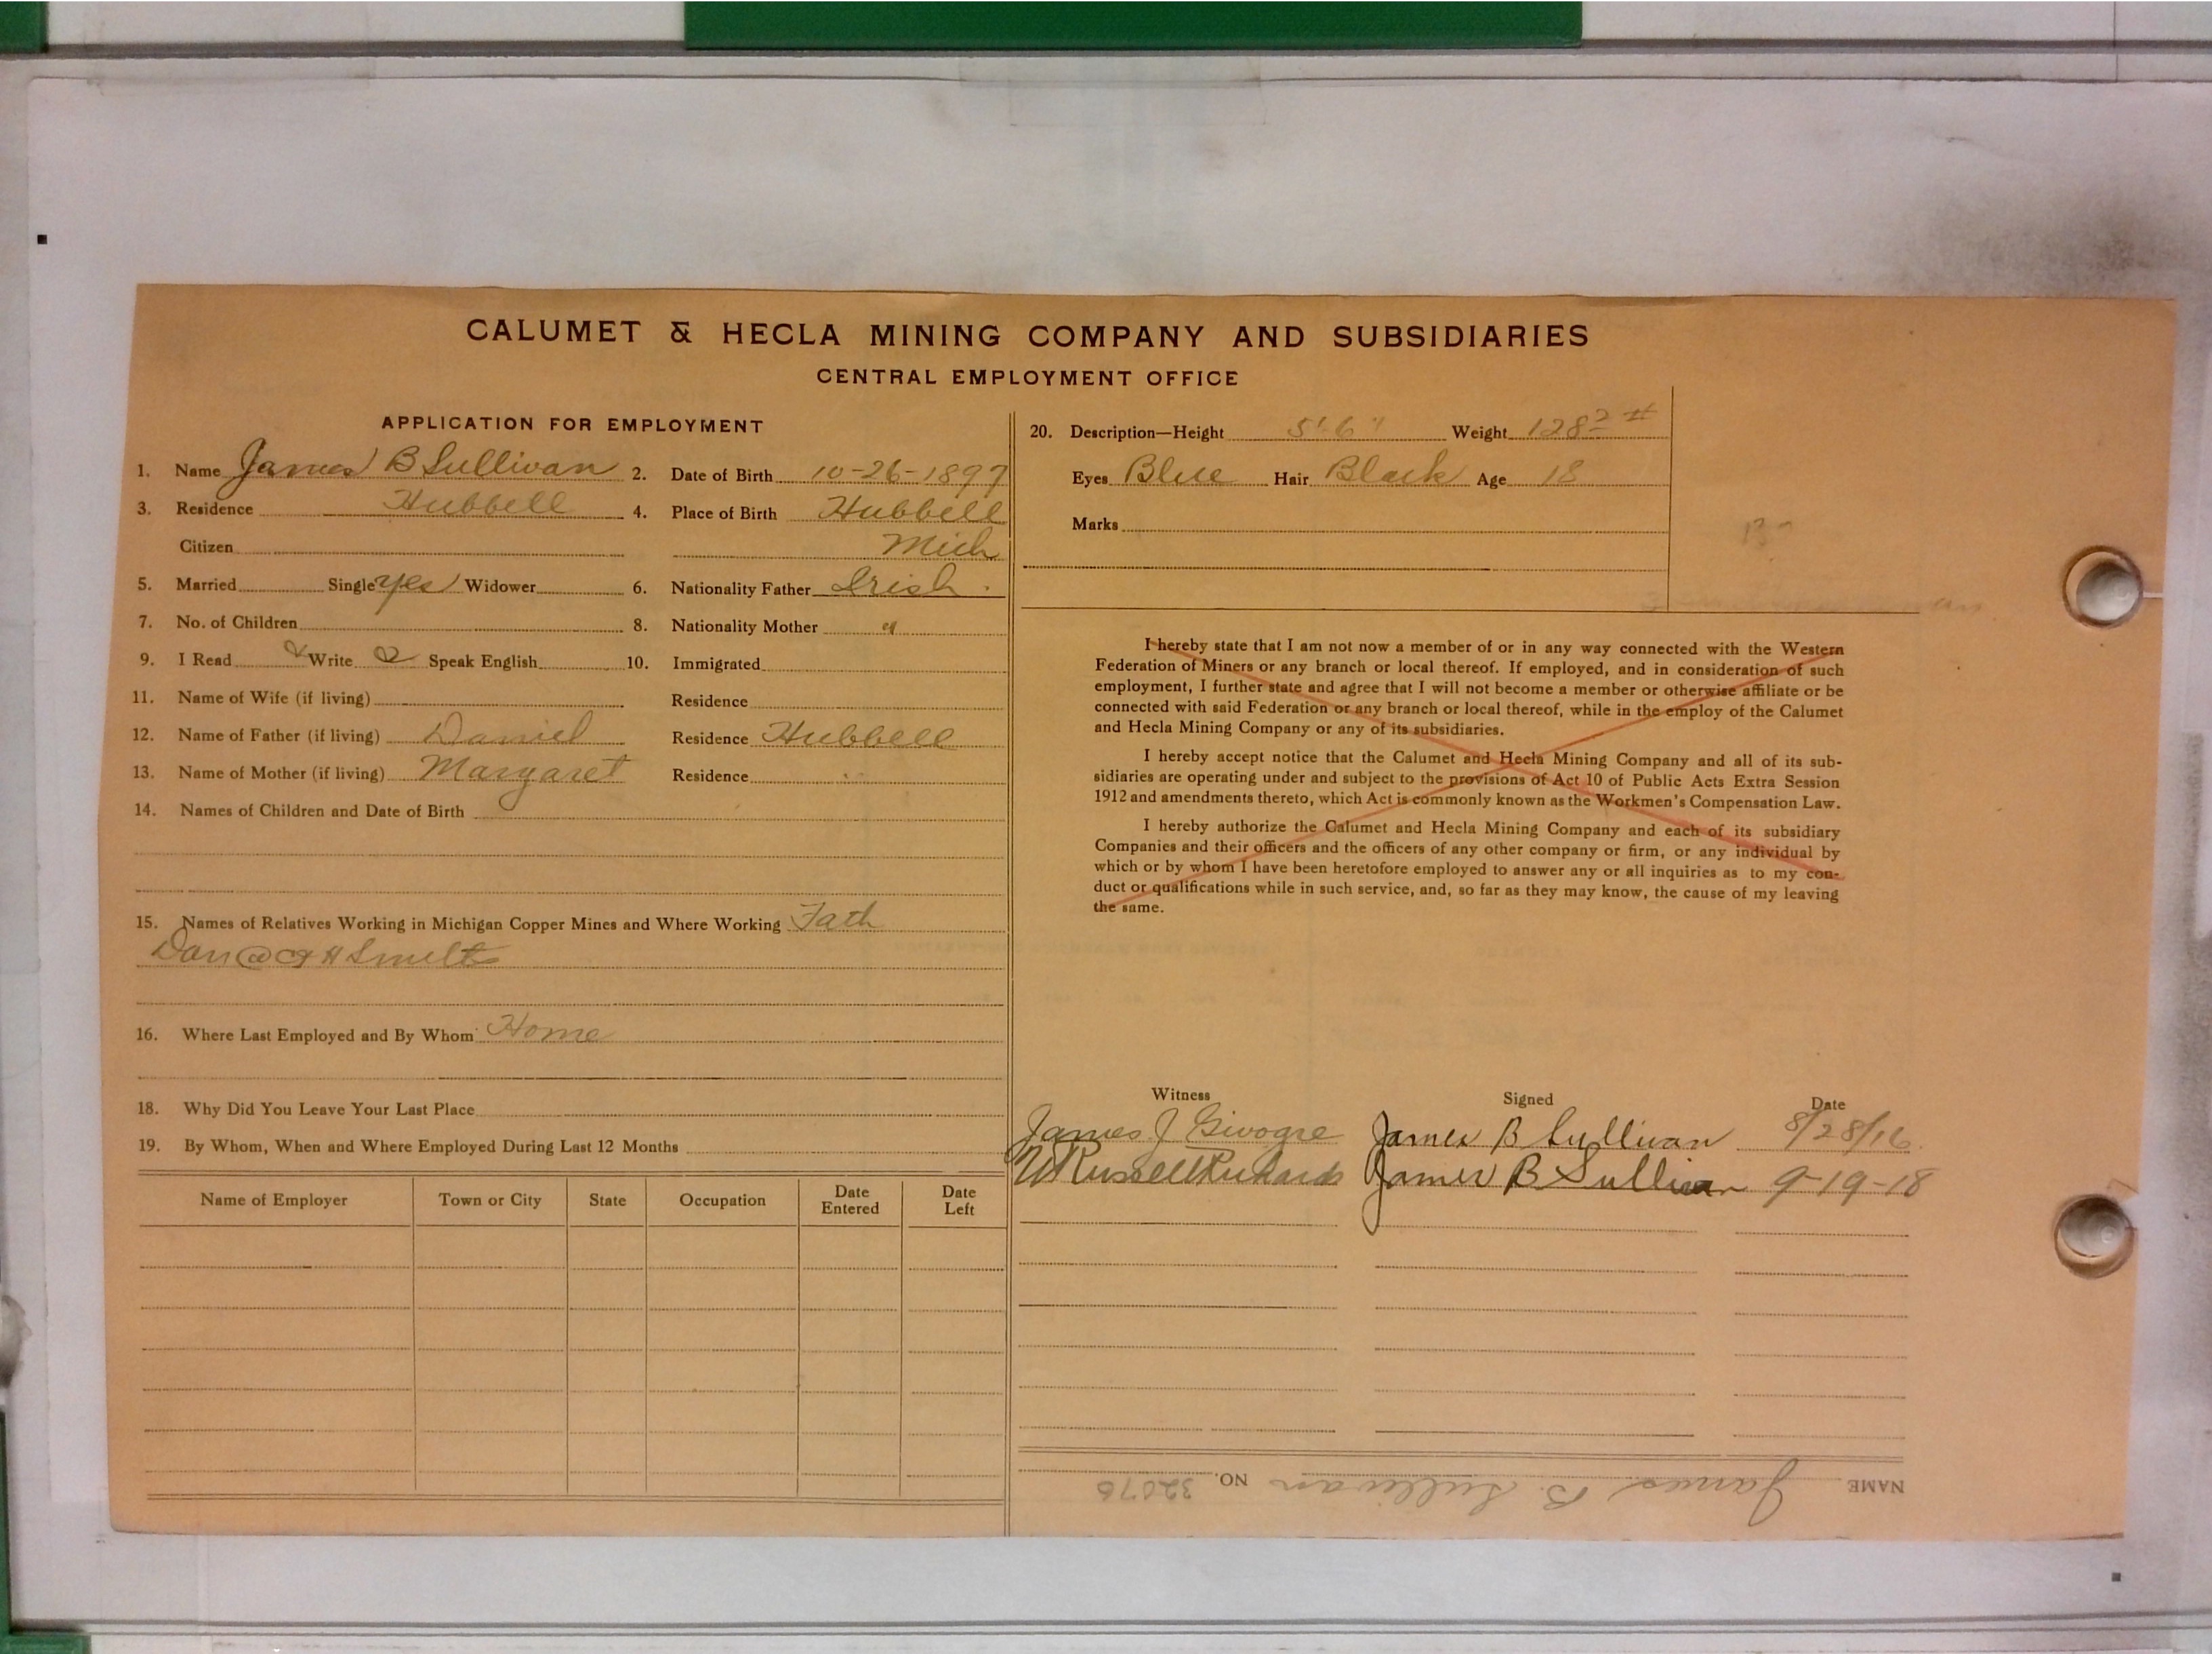 CALUMET & HECLA MINING COMPANY AND SUBSIDIARIES
CENTRAL EMPLOYMENT OFFICE
APPLICATION FOR EMPLOYMENT
1. Name James B Sullivan 2. Date of Birth 10-26-1897
3. Residence Hubbell 4. Place of Birth Hubbell
Citizen Mich
5. Married Single yes Widower 6. Nationality Father Irish
7. No. of Children 8. Nationality Mother "
9. I Read Write Speak English 10. Immigrated
11. Name of Wife (if living) Residence
12. Name of Father (if living) Daniel Residence Hubbell
13. Name of Mother (if living) Margaret Residence "
14. Names of Children and Date of Birth
15. Names of Relatives Working in Michigan Copper Mines and Where Working Fath
Dan @ C & H Smelt
16. Where Last Employed and By Whom Home
18. Why Did You Leave Your Last Place
19. By Whom, When and Where Employed During Last 12 Months
Name of Employer Town or City State Occupation Date Entered Date Left
20. Description—Height 5'-6" Weight 128 #
Eyes Blue Hair Black Age 18
Marks
I hereby state that I am not now a member of or in any way connected with the Western
Federation of Miners or any branch or local thereof. If employed, and in consideration of such
employment, I further state and agree that I will not become a member or otherwise affiliate or be
connected with said Federation or any branch or local thereof, while in the employ of the Calumet
and Hecla Mining Company or any of its subsidiaries.
I hereby accept notice that the Calumet and Hecla Mining Company and all of its sub-
sidiaries are operating under and subject to the provisions of Act 10 of Public Acts Extra Session
1912 and amendments thereto, which Act is commonly known as the Workmen's Compensation Law.
I hereby authorize the Calumet and Hecla Mining Company and each of its subsidiary
Companies and their officers and the officers of any other company or firm, or any individual by
which or by whom I have been heretofore employed to answer any or all inquiries as to my con-
duct or qualifications while in such service, and, so far as they may know, the cause of my leaving
the same.
Witness Signed Date
James J James B Sullivan 8/28/16
W Russell Richards James B Sullivan 9-19-18
NAME James B. Sullivan NO.